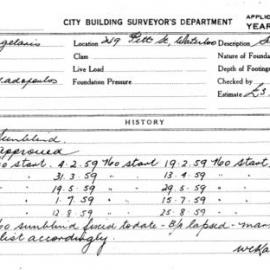 CITY BUILDING SURVEYOR'S DEPARTMENT APPLIC
YEAR
gelanis Location 219 Pitt St, Waterloo Description S
Clam Nature of Founda
Live Load Depth of Footing
adopoulos Foundation Pressure Checked by
Estimate £3
HISTORY
Sunblind.
approved
no start 4.2.59 No start 19.2.59 No start
" 31.3.59 " 13.4.59 "
" 19.5.59 " 29.5.59 "
" 1.7.59 " 15.7.59 "
" 12.8.59 " 25.8.59 "
No sunblind fixed to date - B/A lapsed - man
list accordingly.